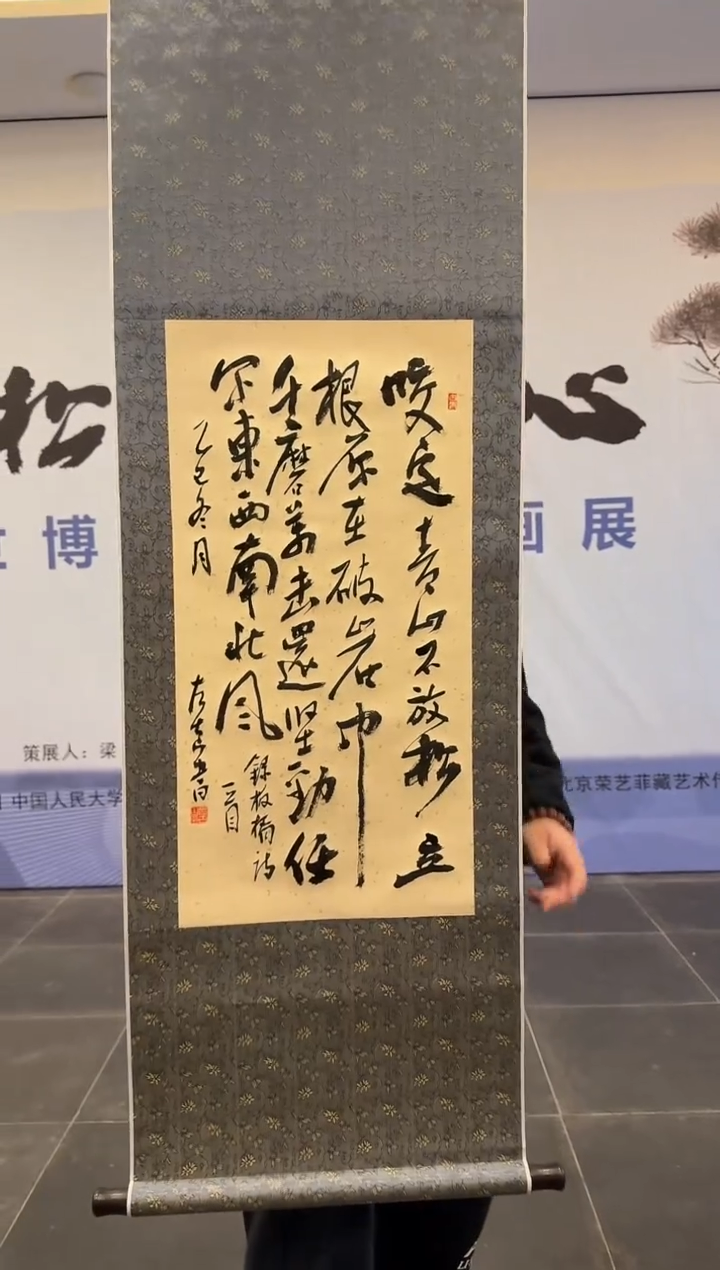 咬定青山不放松立
根原在破岩中
千磨万击還坚勁任
尔東西南北风
録板橋诗
一首
乙巳冬月
松
心
博
画展
策展人：梁
中国人民大学
北京荣艺菲藏艺术